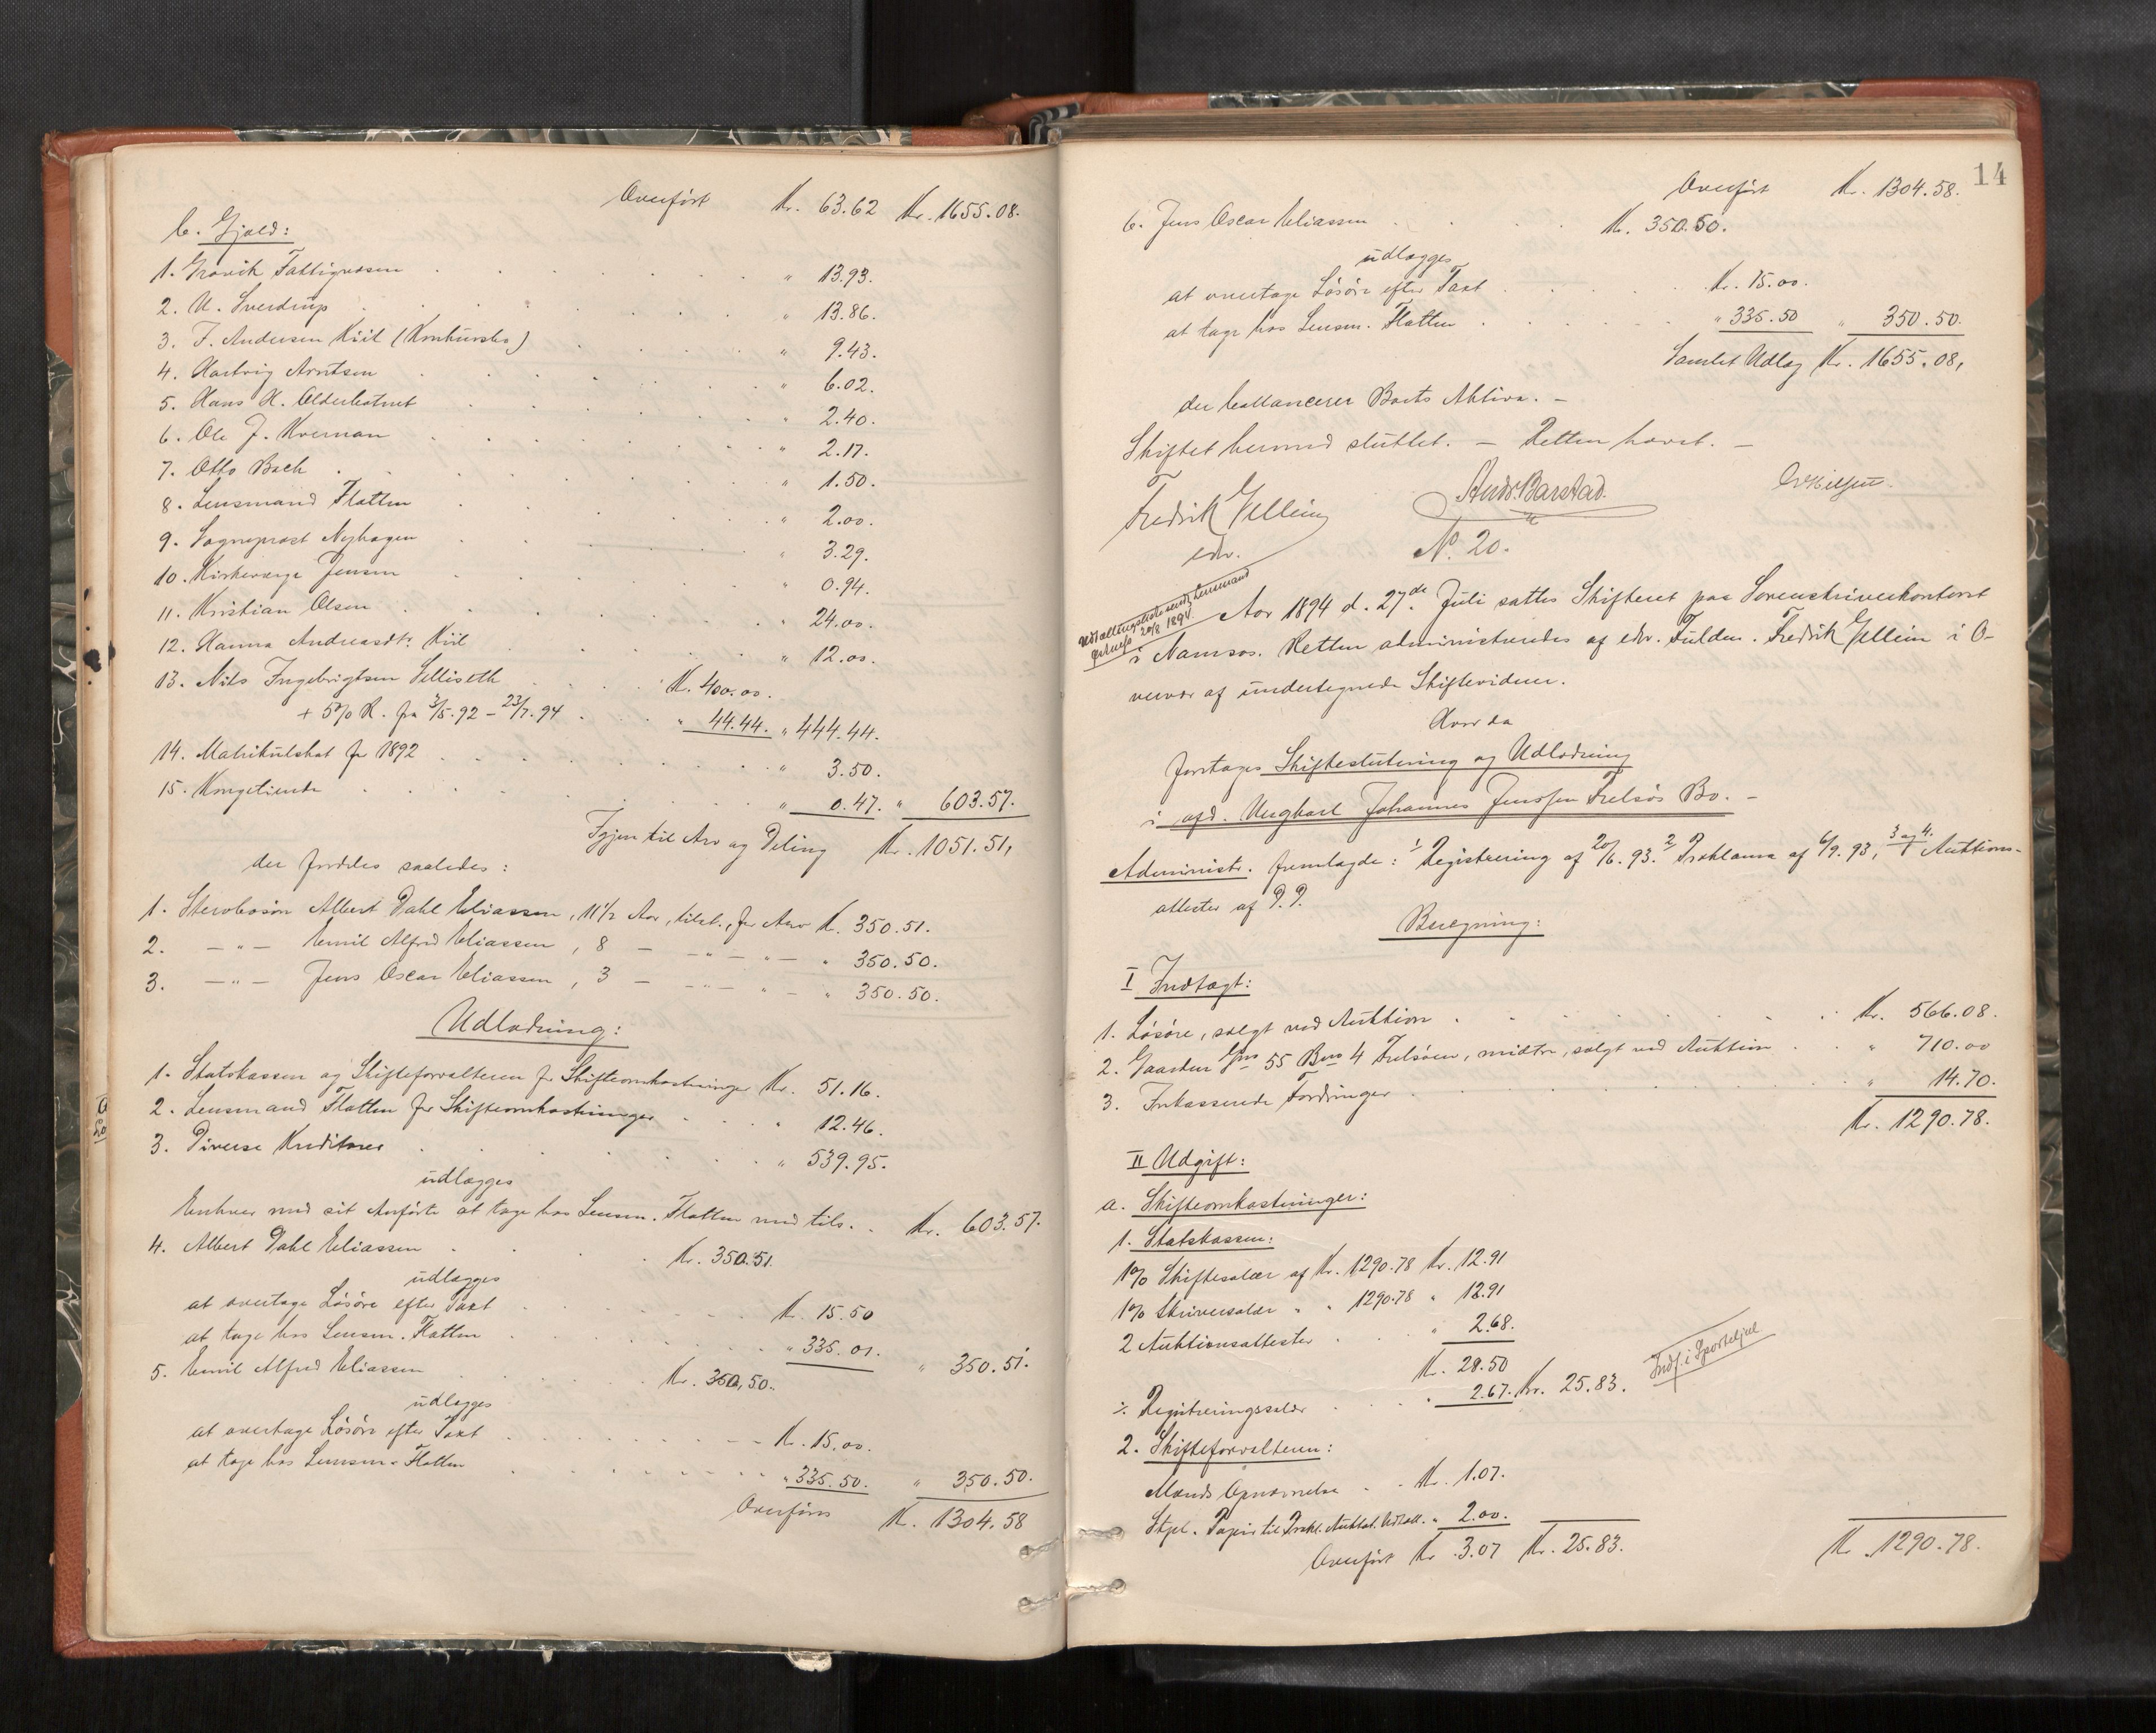 Overført Kr. 63.62 Kr. 1655.08.
b. Gjæld:
1. Gravik Fattigvæsen " 13.93.
2. A. Sverdrup " 13.86.
3. J. Andersen Kiil (Konkursbo) " 9.43.
4. Hartvig Arntsen " 6.02.
5. Hans H. " 2.40.
6. Ole J. Kvernan " 2.17.
7. Otto Bach " 1.50.
8. Lensmand Flatten " 2.00.
9. Sogneprost Nyhagen " 3.29.
10. Kirkeværge Jensen " 0.94.
11. Kristian Olsen " 24.00.
12. Hanna Andreasdtr. Kiil " 12.00.
13. Nils Ingebrigtsen Selliseth Kr. 400.00.
+ 5% R. fra 3/5.92 – 23/7.94 " 44.44. " 444.44.
14. Matrikulskat for 1892 " 3.50.
15. Kongetiende " 0.47. " 603.57.
Igjen til Arv og Deling Kr. 1051.51,
der fordeles saaledes:
1. Stervbosøn Albert Dahl Eliassen, 11 1/2 Aar, tilst., for Arv Kr. 350.51.
2. – " – Emil Alfred Eliassen, 8 – – " – " – " 350.50.
3. – " – Jens Oscar Eliassen, 3 – – " – " – " 350.50.
Udlodning:
1. Statskassen og Skifteforvalteren for Skifteomkostninger Kr. 51.16.
2. Lensmand Flatten for Skifteomkostninger " 12.46.
3. Diverse Kreditorer " 539.95.
udlægges
Enhver med sit Anførte at tage hos Lensm. Flatten med tils. Kr. 603.57.
4. Albert Dahl Eliassen Kr. 350.51.
udlægges
at overtage Løsøre efter Taxt Kr. 15.50
at tage hos Lensm. Flatten " 335.01. " 350.51.
5. Emil Alfred Eliassen Kr. 350,50.
udlægges
at overtage Løsøre efter Taxt Kr. 15.00.
at tage hos Lensm. Flatten " 335.50. " 350.50.
Overføres Kr. 1304.58
14
Overført Kr. 1304.58.
6. Jens Oscar Eliassen Kr. 350.50.
udlægges
at overtage Løsøre efter Taxt Kr. 15.00.
at tage hos Lensm. Flatten " 335.50 " 350.50.
Samlet Udlæg Kr. 1655.08,
der ballancerer Boets Aktiva. –
Skiftet hermed sluttet. – Retten hævet. –
Fredrik Gellein Andr. Barstad.
edv.
No. 20.
20/8 1894.
Aar 1894 d. 27de Juli sattes Skifteret paa Sorenskriverkontoret
i Namsos. Retten administreredes af edv. Fuldm. Fredrik Gellein i O-
vervær af undertegnede Skiftevidner.
Hvor da
foretoges Skifteslutning og Udlodning
i afd. Ungkarl Johannes Jenssen Frelsøs Bo. –
Administr. fremlagde: 1 Registrering af 20/6.93. 2 Proklama af 6/9.93, 3 og 4. Auktions-
attester af D.D.
Beregning:
I Indtægt:
1. Løsøre, solgt ved Auktion Kr. 566.08.
2. Gaarden Gno 55 Bno 4 Frelsøen, midtre, solgt ved Auktion " 710.00
3. Inkasserede Fordringer " 14.70.
Kr. 1290.78.
II Udgift:
a. Skifteomkostninger:
1. Statskassen:
1% Skiftesalær af Kr. 1290.78 Kr. 12.91
1% Skriversalær " " 1290.78 " 12.91
2 Auktionsattester " 2.68.
Kr. 28.50
÷ Registreringssalær " 2.67. Kr. 25.83.
Indf. i Sporteljul
2. Skifteforvalteren:
Mænds Opnævnelse Kr. 1.07.
Stpl. Papir til Prokl. Auktat. Udtall. " 2.00.
Overført Kr. 3.07 Kr. 25.83. Kr. 1290.78.